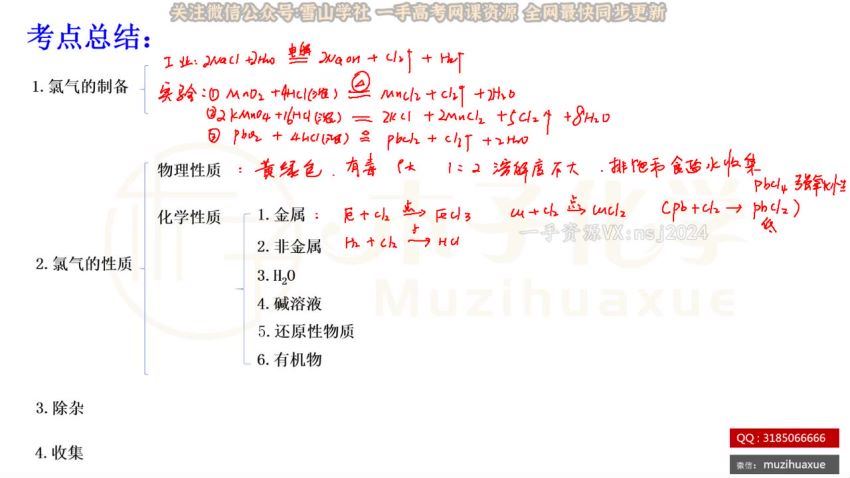 关注微信公众号:雪山学社 一手高考网课资源 全网最快同步更新
考点总结:
工业: 2NaCl+2H2O 电解 2NaOH + Cl2↑ + H2↑
1. 氯气的制备
实验: ① MnO2 + 4HCl(浓) △ MnCl2 + Cl2↑ + 2H2O
② 2KMnO4 + 16HCl(浓) = 2KCl + 2MnCl2 + 5Cl2↑ + 8H2O
③ PbO2 + 4HCl(浓) PbCl2 + Cl2↑ + 2H2O
物理性质 : 黄绿色. 有毒 ρ大 1:2 溶解度不大. 排饱和食盐水收集
PbCl4 强氧化性
化学性质
1. 金属 : Fe + Cl2 点 → FeCl3 Cu + Cl2 点 → CuCl2 (Pb + Cl2 → PbCl2)
低
一手资源VX:nsj2024
2. 非金属 H2 + Cl2 → HCl
2. 氯气的性质
3. H2O
木子化学
Muzihuaxue
4. 碱溶液
5. 还原性物质
6. 有机物
3. 除杂
4. 收集
QQ : 3185066666
微信: muzihuaxue